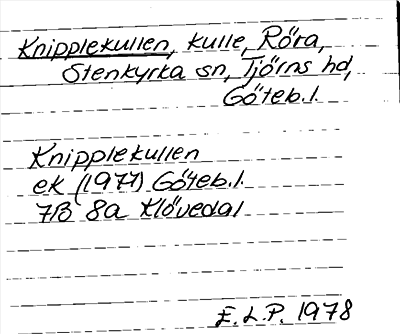 Knipplekullen, kulle, Röra,
Stenkyrka sn, Tjörns hd,
Göteb.l.
Knipplekullen
ek (1977) Göteb.l.
7B 8a Klövedal
E.L.P. 1978